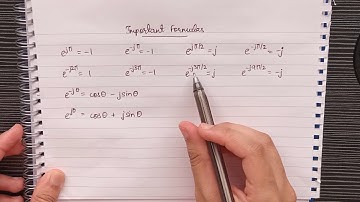 Important Formulas
e^jπ = -1 e^-jπ = -1 e^jπ/2 = j e^-jπ/2 = -j
e^-j2π = 1 e^-j3π = -1 e^-j3π/2 = j e^-j9π/2 = -j
e^-jθ = cosθ - jsinθ
e^jθ = cosθ + jsinθ